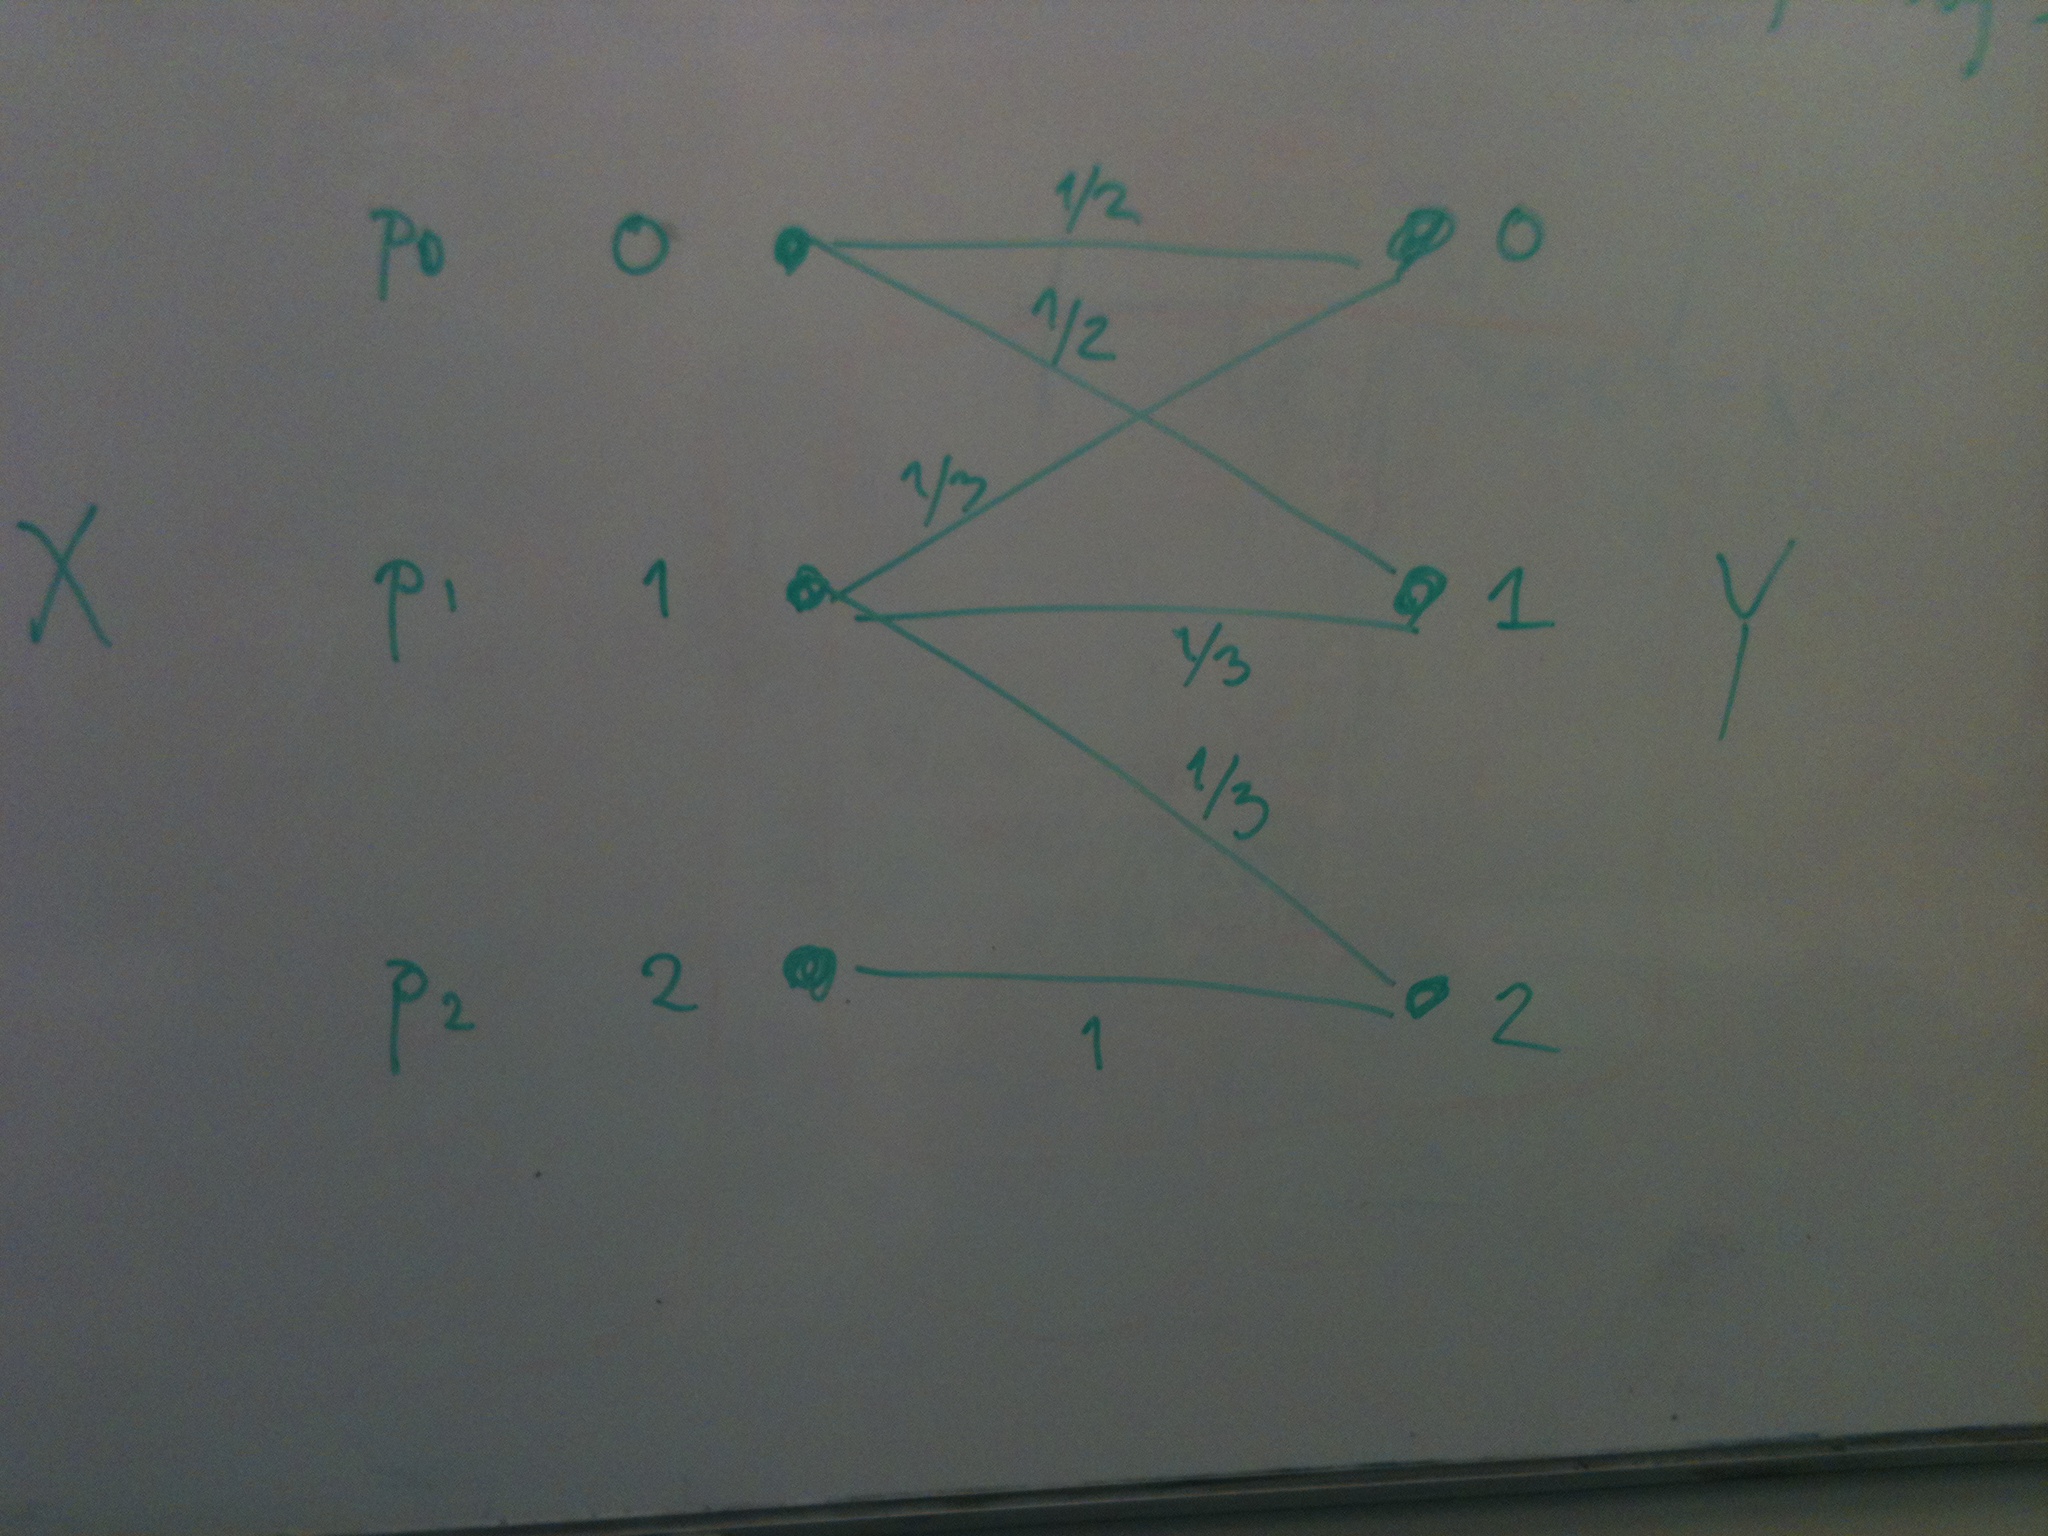 1/2
p0 0 0
1/2
1/3
X p1 1 1 Y
1/3
1/3
p2 2 2
1